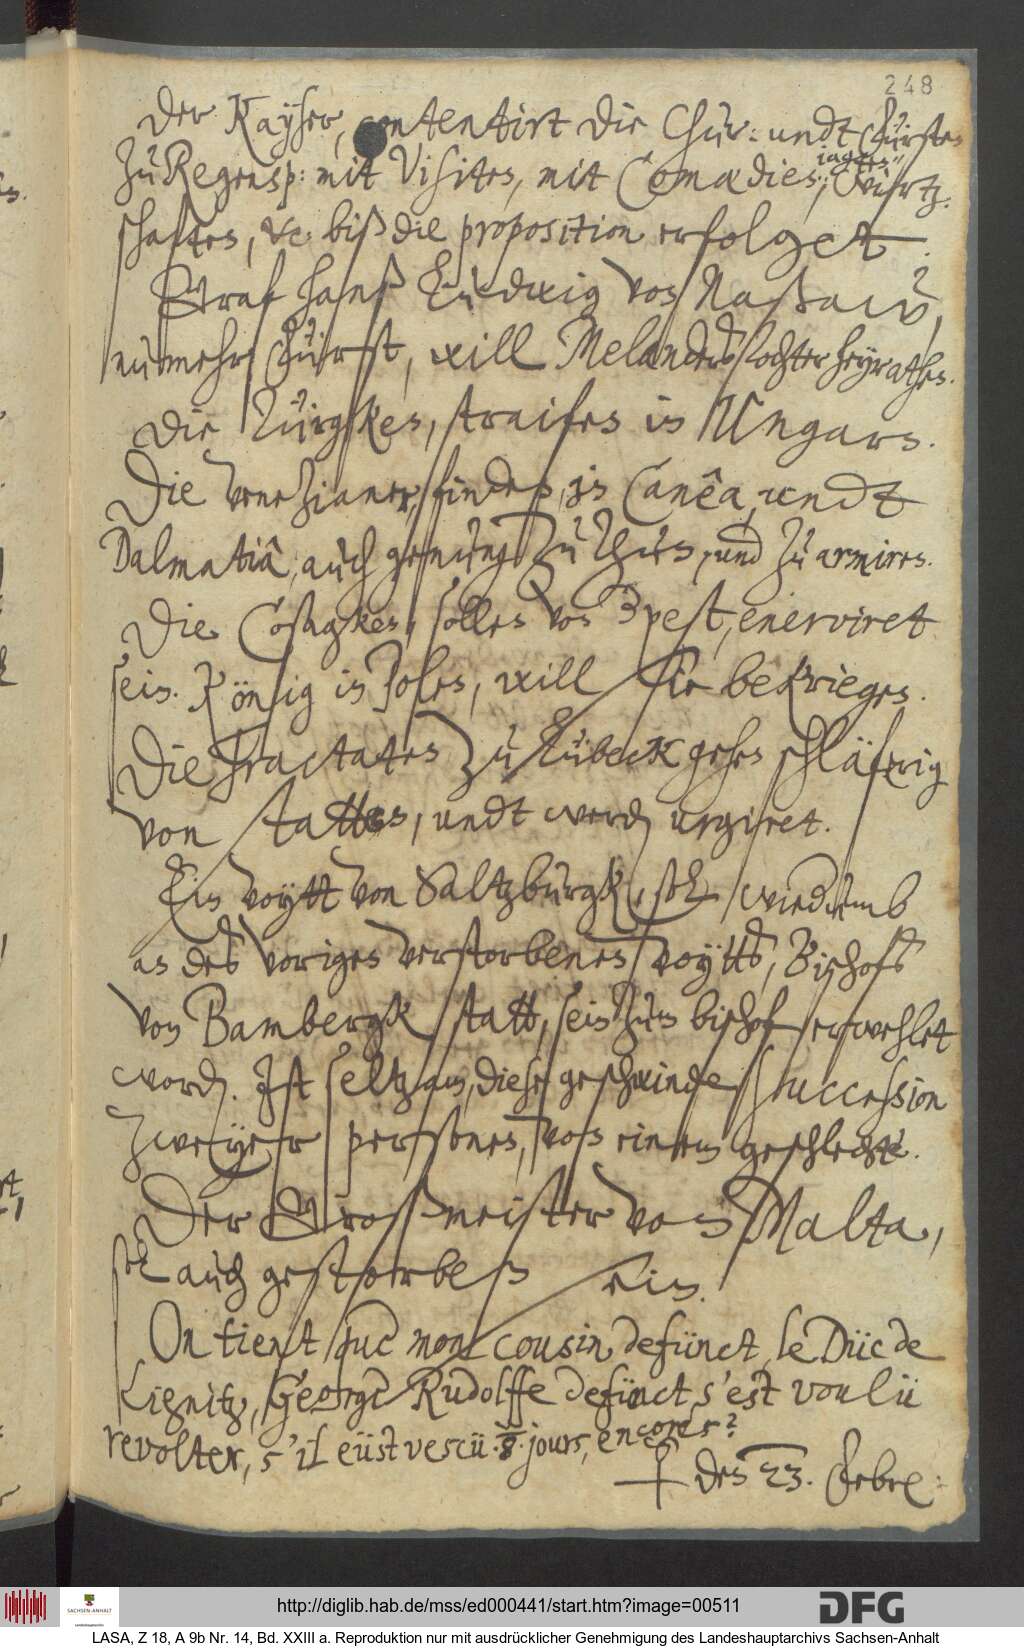 248
Der Kayser, contentirt die Chur: undt Fürsten
zu Regensp: mit Visiten, mit Comœdien, iagten, Wirtz-
schaften, etc: biß die proposition erfolget.
Graf Hanß Ludwig von Naßaw,
nunmehr Fürst, will Melanders Tochter heyrathen.
Die Türgken, straifen in Ungarn.
Die Venezianer, finden in Canêa, undt
Dalmatiâ, auch genung zu thun, und zu armiren.
Die Cosagken, sollen von der pest, enerviret
sein. König in Polen, will sie bekriegen.
Die Tractaten zu Lübeck gehen schläferig
von statten, undt werden urgiret.
Ein Voytt von Saltzburgk, soll wiedrumb
an des vorigen verstorbenen Voytts, Bischofs
von Bambergk statt, sein zum bischof erwehlet
worden. Ist seltzam, diese geschwinde succession
zweyer personen, von einem geschlechte.
Der Großmeister von Malta,
soll auch gestorben sein.
On tient que mon cousin defünct, le Düc de
Lignitz, George Rudolffe defünct s'est voulü
revolter, s'il eüst vescü 8. jours, encores?
☩ den 23. Febr:
http://diglib.hab.de/mss/ed000441/start.htm?image=00511
SACHSEN-ANHALT
DFG
LASA, Z 18, A 9b Nr. 14, Bd. XXIII a. Reproduktion nur mit ausdrücklicher Genehmigung des Landeshauptarchivs Sachsen-Anhalt